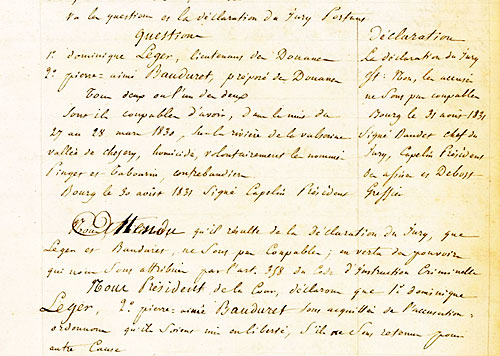 Vu les questions et la déclaration du Jury Portant
Question
1.° dominique Leger, lieutenant des Douanes
2.° pierre=aimé Bauduret, préposé des Douanes
Tous deux ou l'un des deux
Sont ils coupables d'avoir, dans la nuit du
27 au 28 mars 1830, sur la rivière de la valserine
vallée de chezery, homicidé, volontairement le nommé
Pinget et Tabourin, contrebandier
Bourg le 30 aoist 1831 Signé Capelin Président
Déclaration
La déclaration du Jury
est: Non, les accusés
ne Sont pas coupables
Bourg le 31 aoist 1831
Signé Baudet chef du
Jury, Capelin Président
des assises et Debost
Greffier
Attendu qu'il résulte de la déclaration du Jury, que
Leger et Bauduret, ne Sont pas Coupables; en vertu du pouvoir
qui nous Sont attribué par l'art. 358 du Code d'Instruction Criminelle
Nous Président de la Cour, déclarons que 1.° dominique
Leger, 2.° pierre=aimé Bauduret Sont acquittés de l'accusation=
ordonnons qu'ils Soient mis en liberté, S'ils ne Sont retenus pour
autre Cause